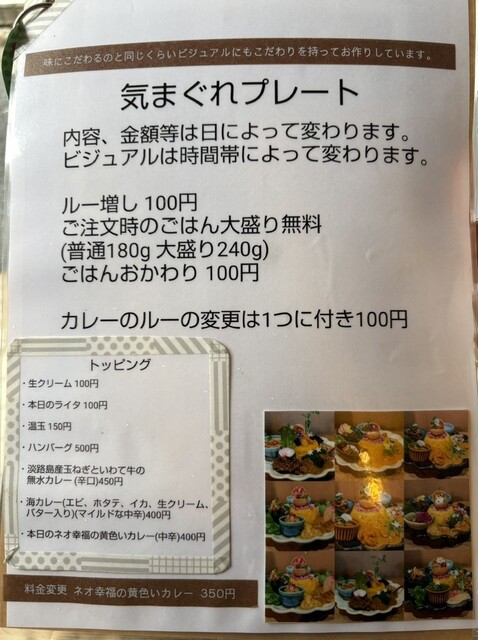 味にこだわるのと同じくらいビジュアルにもこだわりを持ってお作りしています。
気まぐれプレート
内容、金額等は日によって変わります。
ビジュアルは時間帯によって変わります。
ルー増し 100円
ご注文時のごはん大盛り無料
(普通180g 大盛り240g)
ごはんおかわり 100円
カレーのルーの変更は1つに付き100円
トッピング
・生クリーム 100円
・本日のライタ 100円
・温玉 150円
・ハンバーグ 500円
・淡路島産玉ねぎといわて牛の
無水カレー (辛口)450円
・海カレー(エビ、ホタテ、イカ、生クリーム、
バター入り)(マイルドな中辛)400円
・本日のネオ幸福の黄色いカレー(中辛)400円
料金変更 ネオ幸福の黄色いカレー 350円